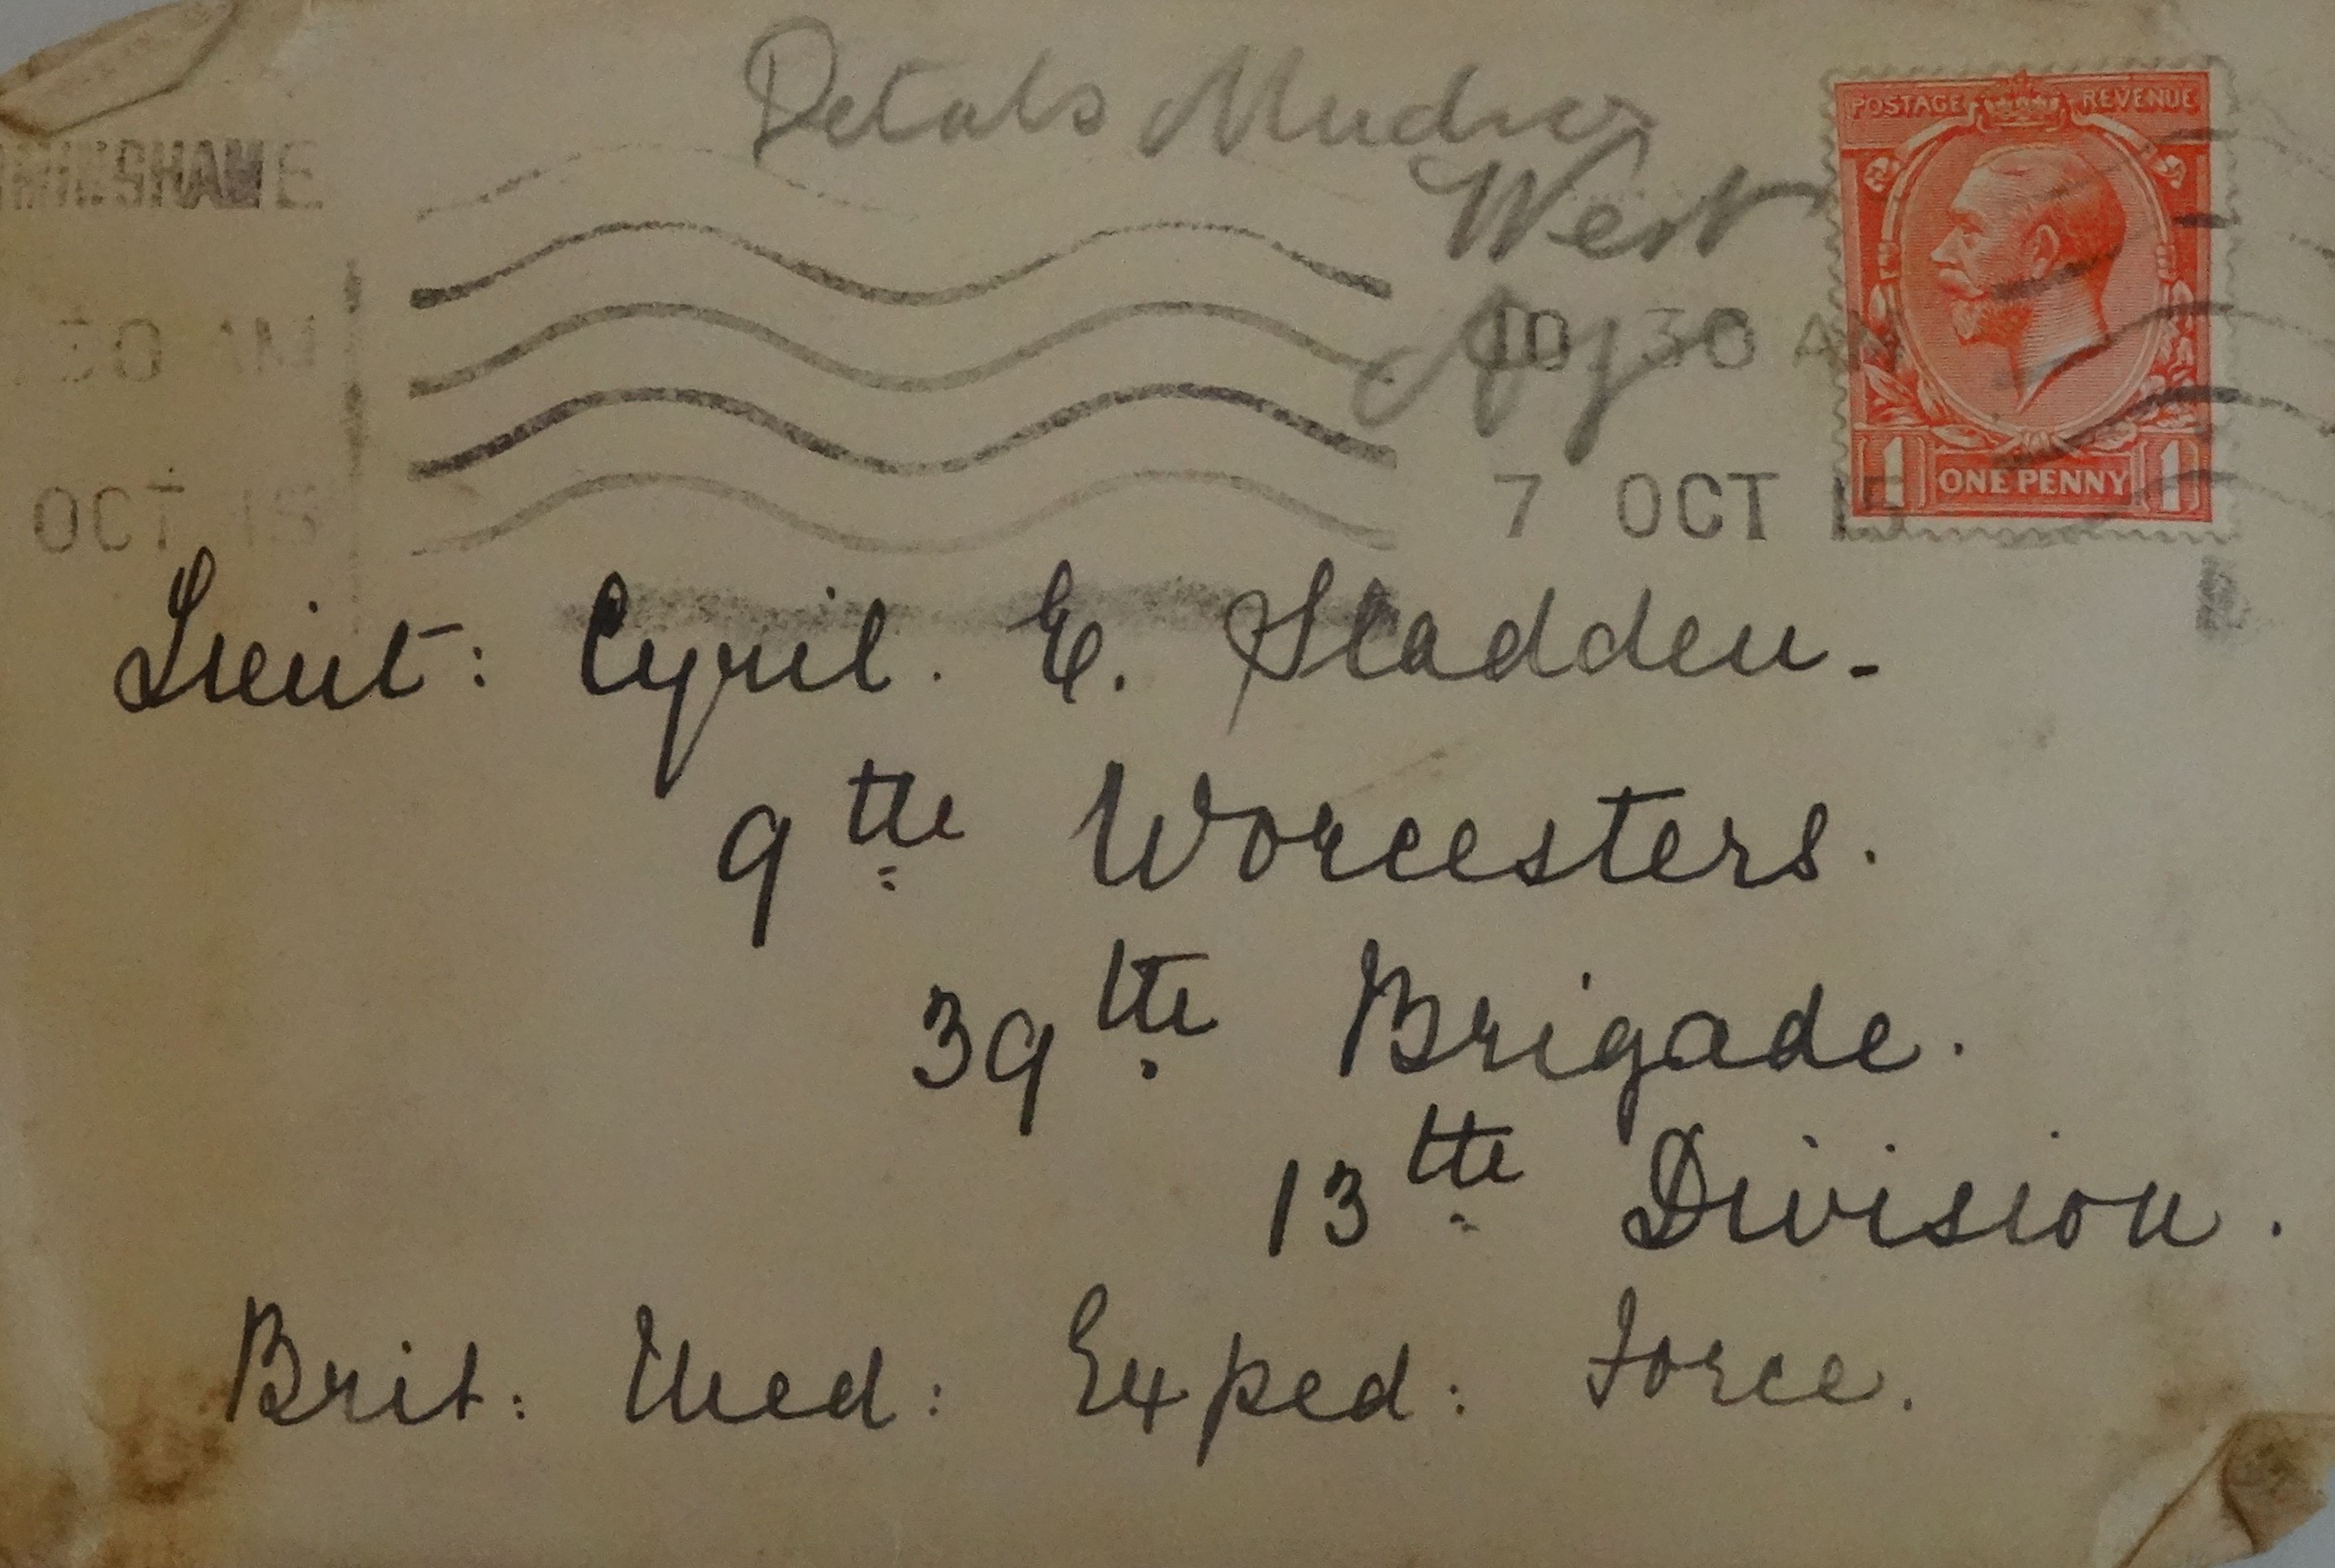 Details Mudros
West
POSTAGE REVENUE
30 AM
10.30 AM
OCT 15
7 OCT 15
1 ONE PENNY 1
Lieut: Cyril. E. Sladden.
9th Worcesters.
39th Brigade.
13th Division.
Brit: Med: Exped: Force.